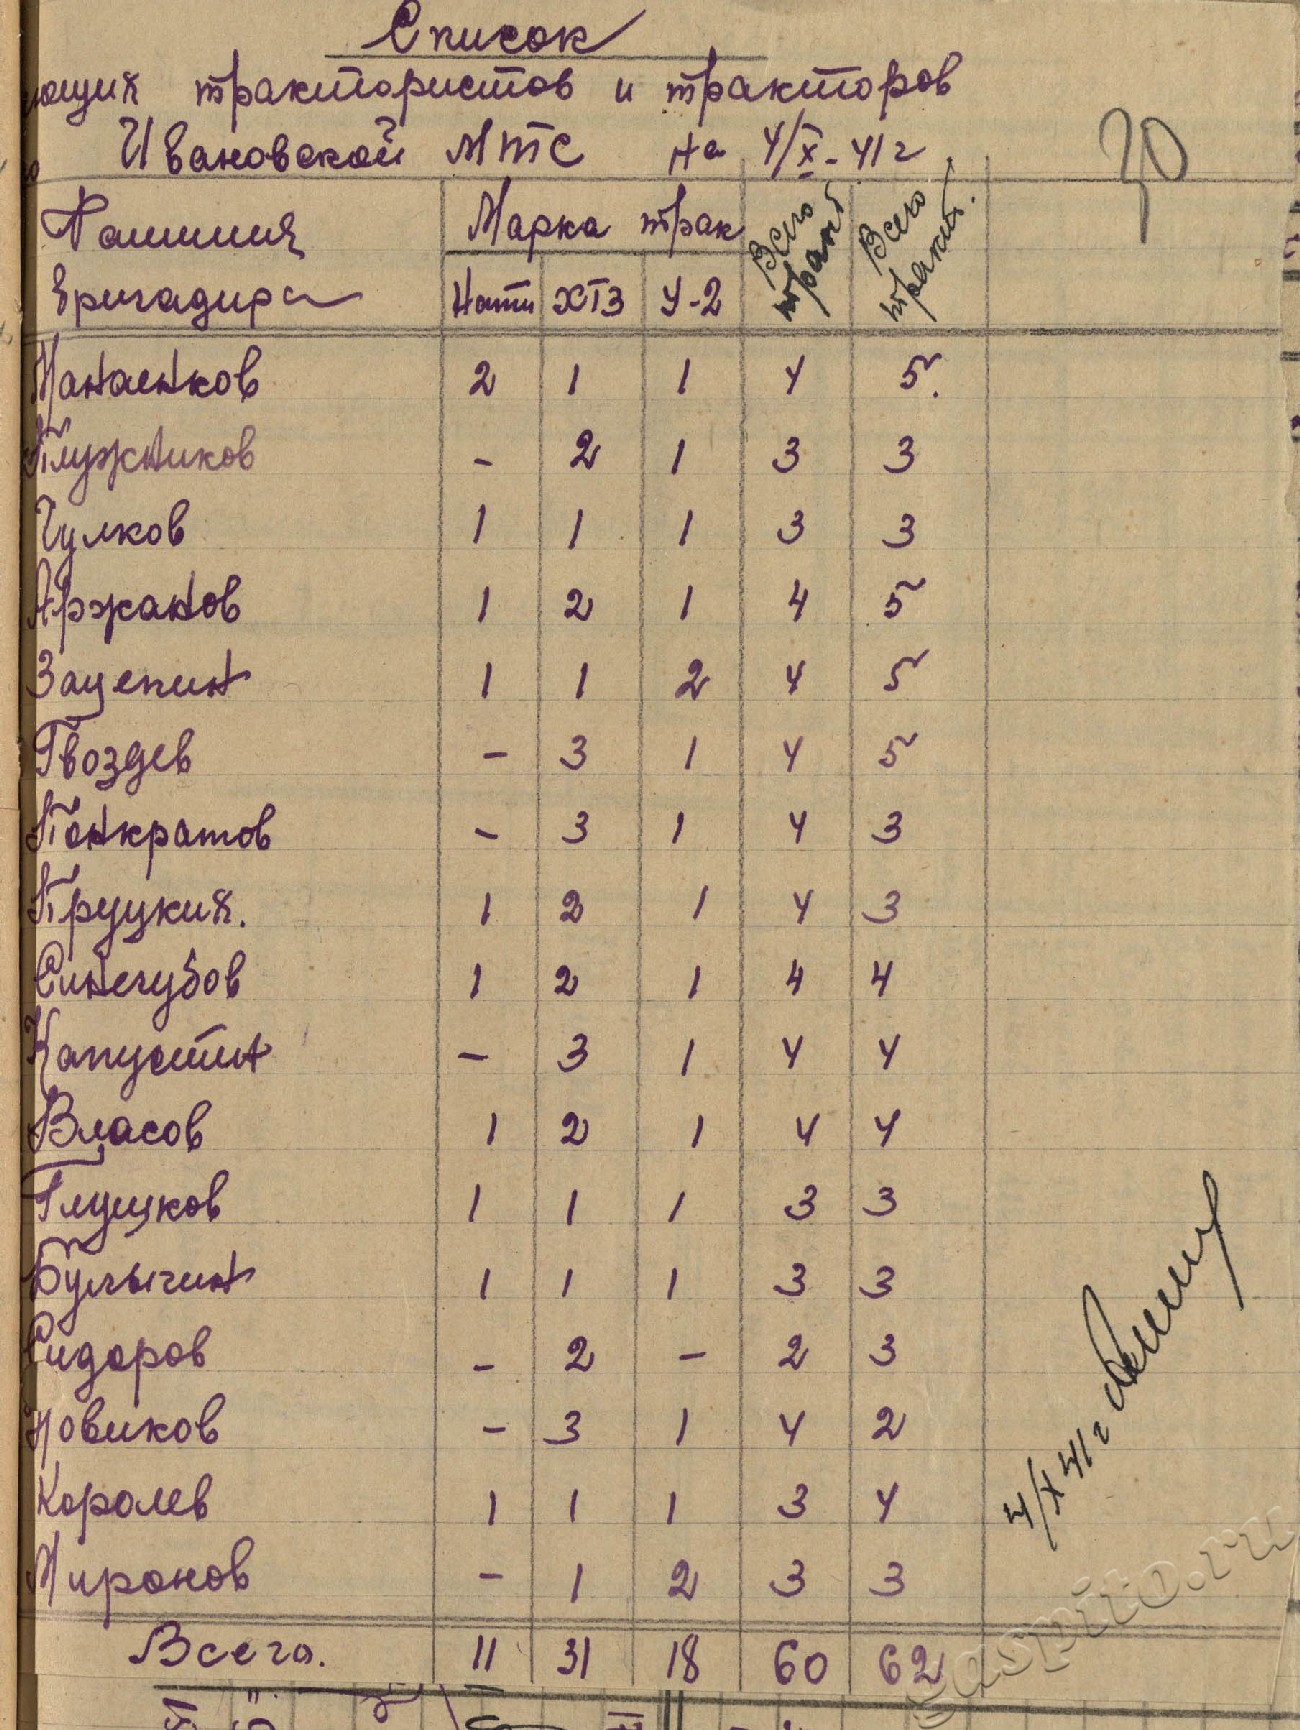 Список
ющих трактористов и тракторов
Ивановской МТС на 4/X-41г
30
Фамилия Марка трак Всего тракт Всего тракт.
бригадира Нати ХТЗ У-2
Манаенков 2 1 1 4 5.
Плужников - 2 1 3 3
Чулков 1 1 1 3 3
Аржанов 1 2 1 4 5
Зацепин 1 1 2 4 5
Гвоздев - 3 1 4 5
Панкратов - 3 1 4 3
Пруцких. 1 2 1 4 3
Синегубов 1 2 1 4 4
Капустин - 3 1 4 4
Власов 1 2 1 4 4
Глушков 1 1 1 3 3
Булычин 1 1 1 3 3
Сидоров - 2 - 2 3
Новиков - 3 1 4 2
Королев 1 1 1 3 4
Миронов - 1 2 3 3
Всего. 11 31 18 60 62
4/X 41г
gaspito.ru